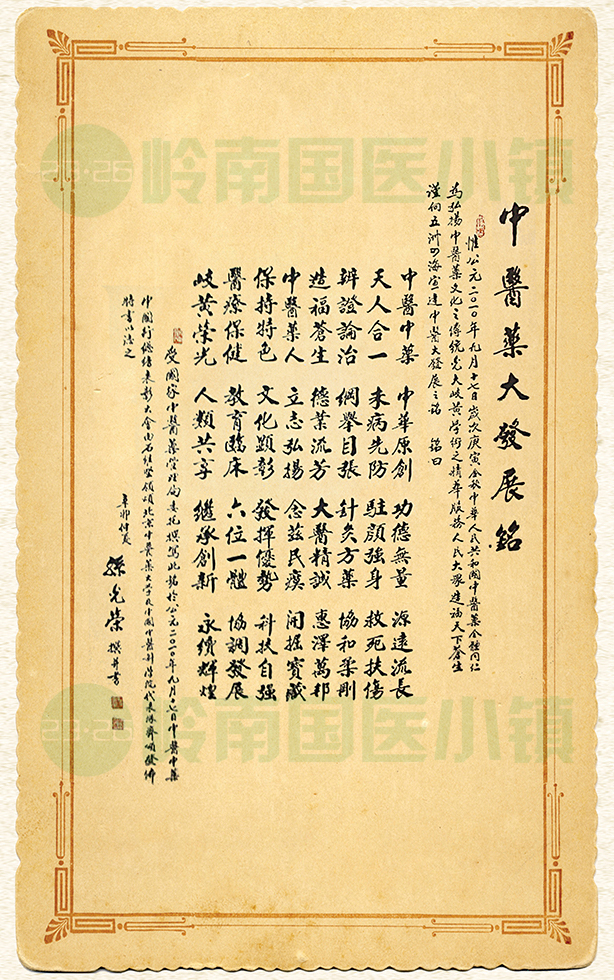 23·26 岭南国医小镇
中醫藥大發展銘
惟公元二〇一〇年九月十七日歲次庚寅金秋中華人民共和國中醫藥全體同仁
為弘揚中醫藥文化之傳統光大岐黃學術之精華服務人民大眾造福天下蒼生
謹向五洲四海宣達中醫大發展之銘 銘曰
中醫中藥 中華原創 功德無量 源遠流長
天人合一 未病先防 駐顏強身 救死扶傷
辨證論治 綱舉目張 針灸方藥 協和柔剛
造福蒼生 德業流芳 大醫精誠 惠澤萬邦
中醫藥人 立志弘揚 念茲民瘼 開掘寶藏
保持特色 文化顯彰 發揮優勢 科技自強
醫療保健 教育臨床 六位一體 協調發展
岐黃榮光 人類共享 繼承創新 永續輝煌
受國家中醫藥管理局委托撰寫此銘於公元二〇一〇年九月十七日中醫中藥
中國行總結表彰大會由石維堅領頌北京中醫藥大學及中國中醫科學院代表隊齊頌發佈
特書以誌之
辛卯仲夏
孫光榮 撰并書
23·26 岭南国医小镇